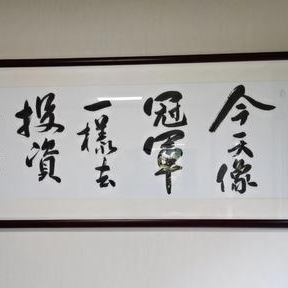 今天像
冠軍
一樣去
投资